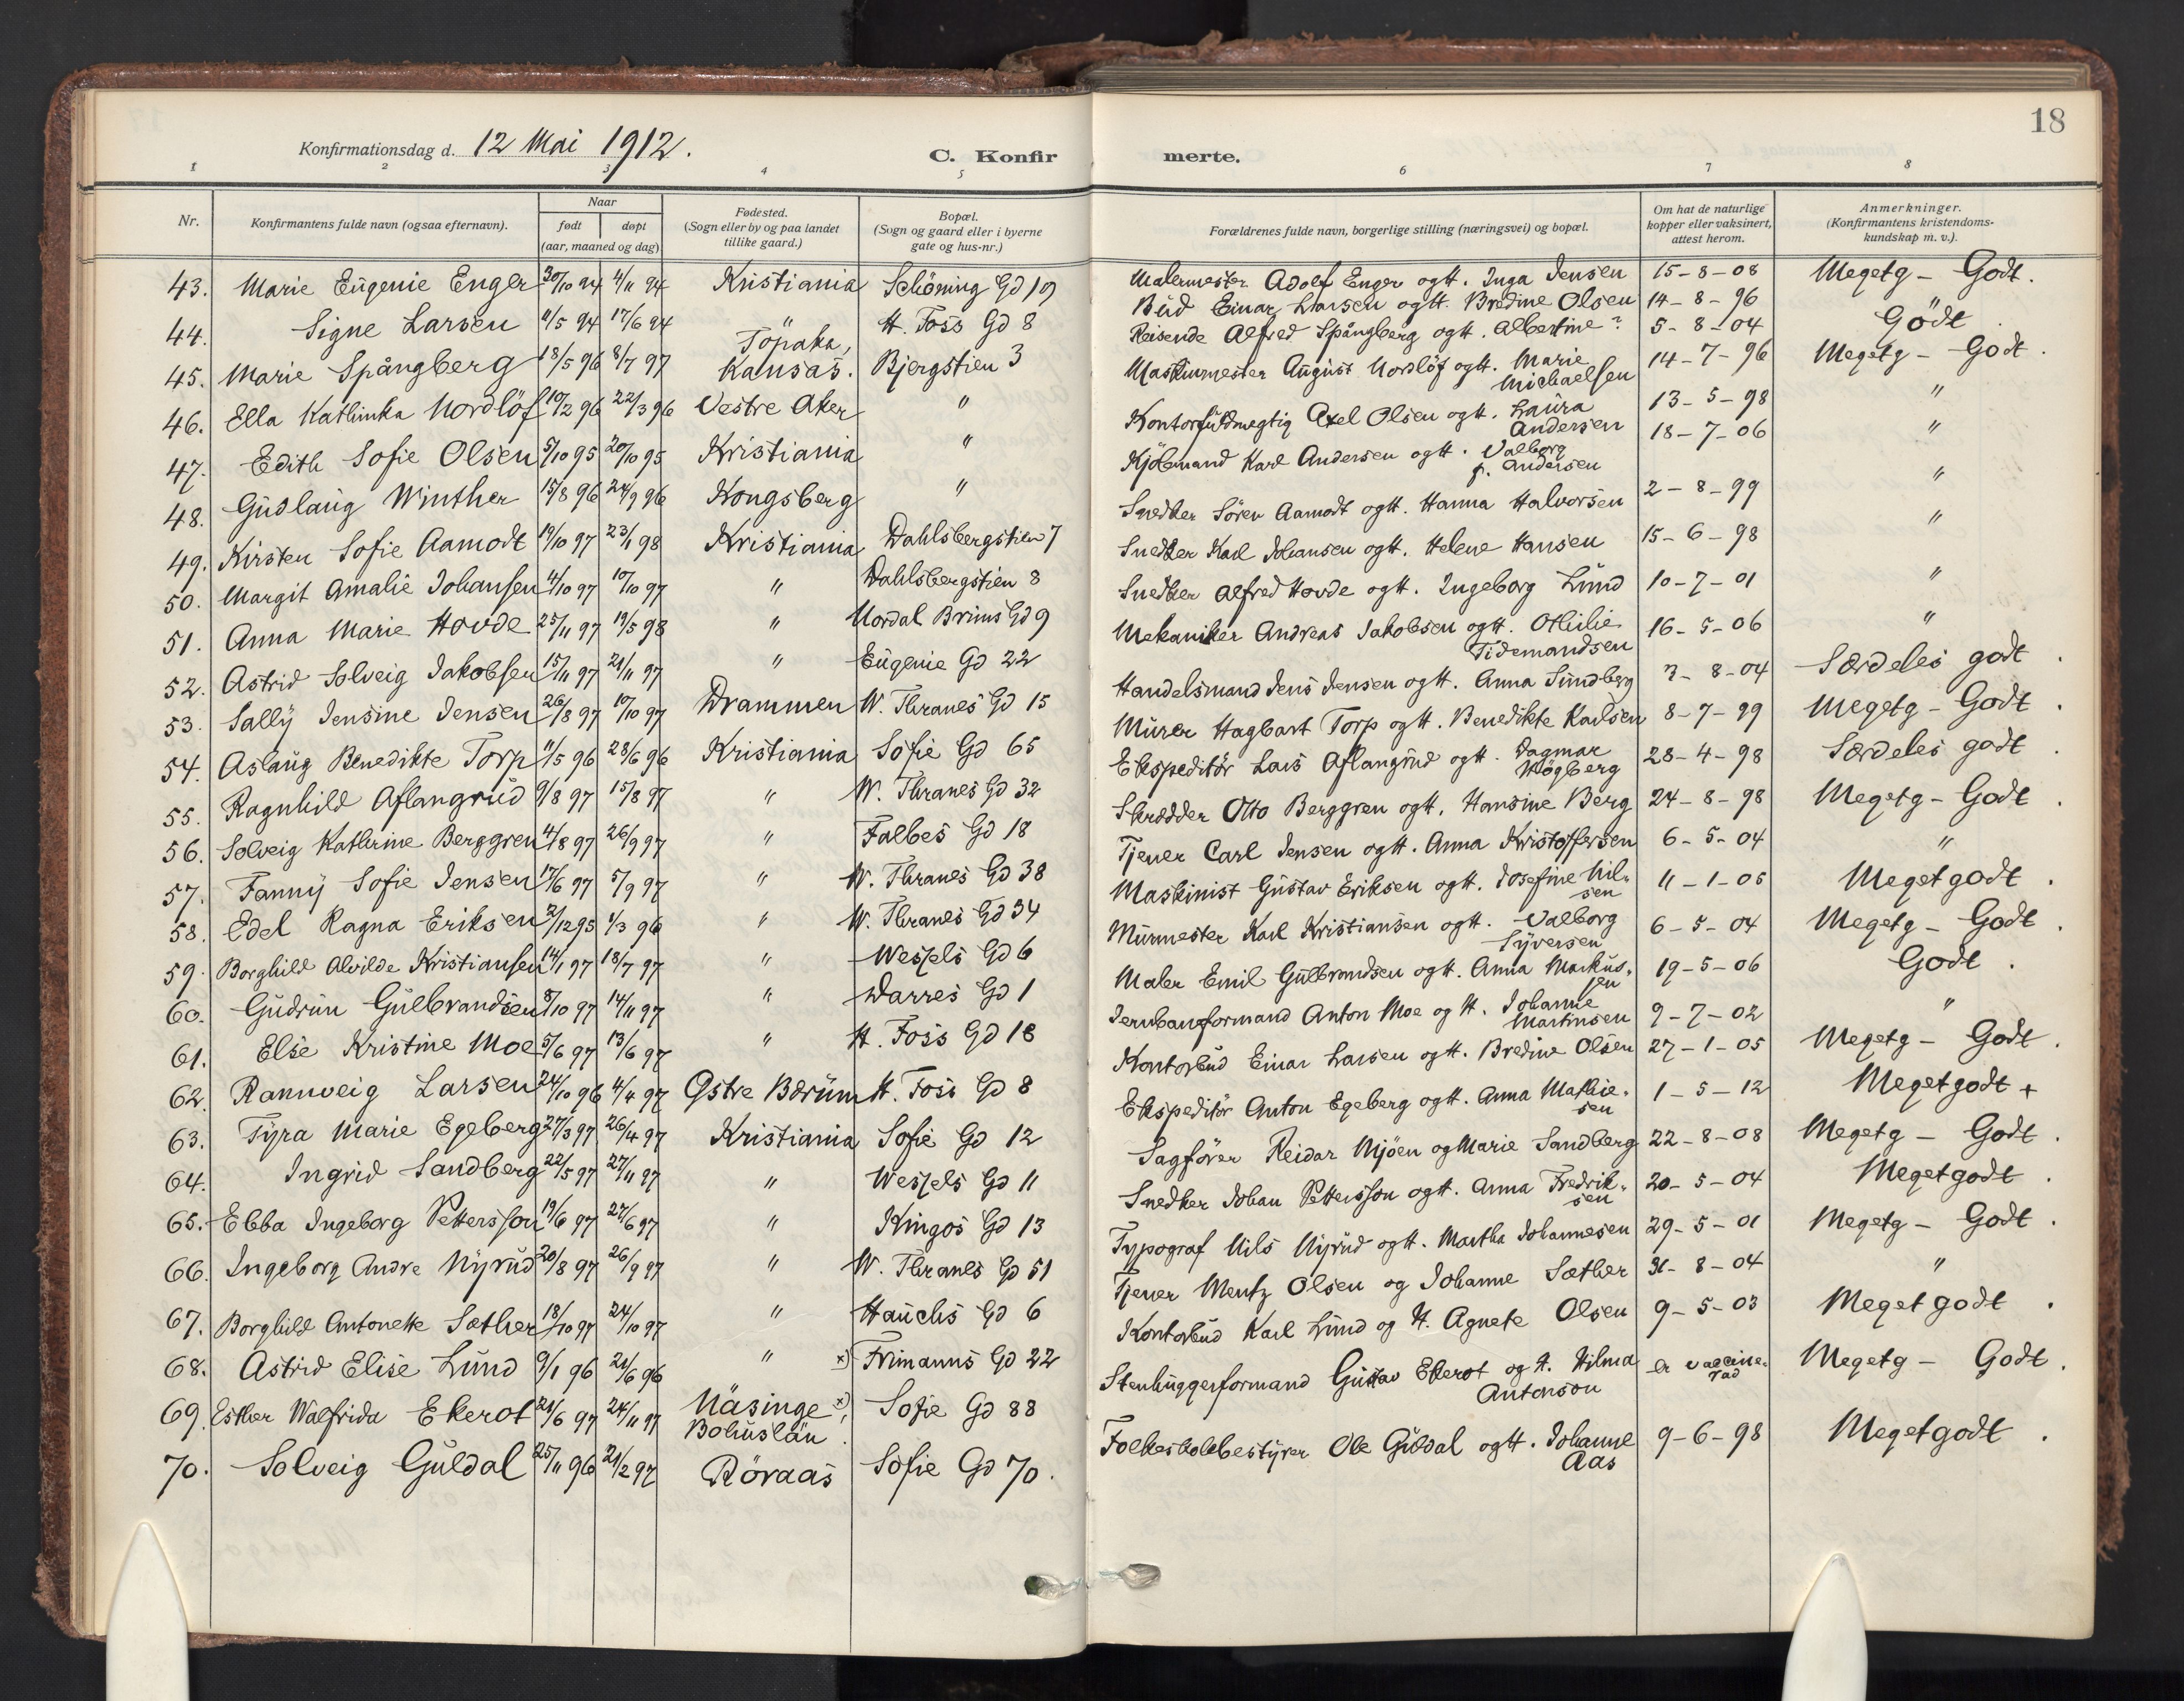 18
Konfirmationsdag d. 12 Mai 1912.
C. Konfirmerte.
1 2 3 4 5 6 7 8
Nr. | Konfirmantens fulde navn (ogsaa efternavn). | Naar født døpt (aar, maaned og dag) | Fødested. (Sogn eller by og paa landet tillike gaard.) | Bopæl. (Sogn og gaard eller i byerne gate og hus-nr.) | Forældrenes fulde navn, borgerlige stilling (næringsvei) og bopæl. | Om hat de naturlige kopper eller vaksinert, attest herom. | Anmerkninger. (Konfirmantens kristendomskundskap m. v.).
43. Marie Eugenie Enger 30/10 94 4/11 94 Kristiania Schöning Gd 19 Malermester Adolf Enger og H. Inga Jensen 15-8-08 Megetg - Godt.
44. Signe Larsen 11/5 94 17/6 94 " H. Foss Gd 8 Bud Einar Larsen og H. Bredine Olsen 14-8-96 Godt.
45. Marie Spångberg 18/5 96 8/7 97 Topaka, Kansas. Bjergstien 3 Reisende Alfred Spångberg og H. Albertine? 5-8-04 Megetg - Godt.
46. Ella Kathinka Nordlöf 10/2 96 22/3 96 Vestre Aker " Maskinmester August Nordlöf og H. Marie Michaelsen 14-7-96 "
47. Edith Sofie Olsen 5/10 95 20/10 95 Kristiania " Kontorfuldmegtig Axel Olsen og H. Laura Andersen 13-5-98 "
48. Gudlaug Winther 15/8 96 24/9 96 Kongsberg " Kjöbmand Karl Andersen og H. Valborg f. Andersen 18-7-06 "
49. Kirsten Sofie Aamodt 19/10 97 23/1 98 Kristiania Dahlsbergstien 7 Snedker Sören Aamodt og H. Hanna Halvorsen 2-8-99 "
50. Margit Amalie Johansen 4/10 97 10/10 97 " Dahlsbergstien 8 Snedker Karl Johansen og H. Helene Hansen 15-6-98 "
51. Anna Marie Hovde 25/11 97 19/5 98 " Nordal Bruns Gd 9 Snedker Alfred Hovde og H. Ingeborg Lund 10-7-01 "
52. Astrid Solveig Jakobsen 15/11 97 21/11 97 " Eugenie Gd 22 Mekaniker Andreas Jakobsen og H. Othilie Tidemandsen 16-5-06 Særdeles godt.
53. Sally Jensine Jensen 26/8 97 10/10 97 Drammen W. Thranes Gd 15 Handelsmand Jens Jensen og H. Anna Sundberg 3-8-04 Megetg - Godt.
54. Aslaug Benedikte Torp 11/5 96 28/6 96 Kristiania Sofie Gd 65 Murer Hagbart Torp og H. Benedikte Karlsen 8-7-99 Særdeles godt.
55. Ragnhild Aflangrud 9/8 97 15/8 97 " W. Thranes Gd 32 Ekspeditör Lars Aflangrud og H. Dagmar Högberg 28-4-98 Megetg - Godt.
56. Solveig Kathrine Berggren 4/8 97 26/9 97 " Falbes Gd 18 Skrædder Otto Berggren og H. Hansine Berg 24-8-98 "
57. Fanny Sofie Jensen 17/6 97 5/9 97 " W. Thranes Gd 38 Tjener Carl Jensen og H. Anna Kristoffersen 6-5-04 Megetgodt.
58. Edel Ragna Eriksen 2/12 95 1/3 96 " W. Thranes Gd 34 Maskinist Gustav Eriksen og H. Josefine Nilsen 11-1-05 Megetg - Godt.
59. Borghild Alvilde Kristiansen 14/1 97 18/7 97 " Wessels Gd 6 Murmester Karl Kristiansen og H. Valborg Syversen 6-5-04 Godt.
60. Gudrun Gulbrandsen 8/10 97 14/11 97 " Darres Gd 1 Maler Emil Gulbrandsen og H. Anna Markussen 19-5-06 "
61. Else Kristine Moe 5/6 97 13/6 97 " H. Foss Gd 18 Jernbanformand Anton Moe og H. Johanne Martinsen 9-7-02 Megetg - Godt.
62. Rannveig Larsen 24/10 96 4/4 97 Østre Bærum H. Foss Gd 8 Kontorbud Einar Larsen og H. Bredine Olsen 27-1-05 Megetgodt +
63. Tyra Marie Egeberg 27/3 97 26/4 97 Kristiania Sofie Gd 12 Ekspeditör Anton Egeberg og H. Anna Mathiesen 1-5-12 Megetg - Godt.
64. Ingrid Sandberg 22/5 97 27/11 97 " Wessels Gd 11 Sagförer Reidar Mjöen og Marie Sandberg 22-8-08 Megetgodt.
65. Ebba Ingeborg Pettersson 19/6 97 27/6 97 " Kingos Gd 13 Snedker Johan Pettersson og H. Anna Fredriksen 20-5-04 Megetg - Godt.
66. Ingeborg Andre Nyrud 20/8 97 26/9 97 " W. Thranes Gd 51 Typograf Nils Nyrud og H. Martha Johannesen 29-5-01 "
67. Borghild Antonette Sæther 18/10 97 24/10 97 " Hauchs Gd 6 Tjener Mentz Olsen og Johanne Sæther 31-8-04 Megetgodt.
68. Astrid Elise Lund 9/1 96 21/6 96 " x) Frimanns Gd 22 Kontorbud Karl Lund og H. Agnete Olsen 9-5-03 Megetg - Godt.
69. Esther Walfrida Ekerot 21/6 97 24/11 97 Näsinge x), Bohuslän. Sofie Gd 88 Stenhuggerformand Gustav Ekerot og H. Hilma Antonson er vaccinerad Megetgodt.
70. Solveig Guldal 25/11 96 21/2 97 Röraas Sofie Gd 70. Folkeskolebestyrer Ole Guldal og H. Johanne Aas 9-6-98